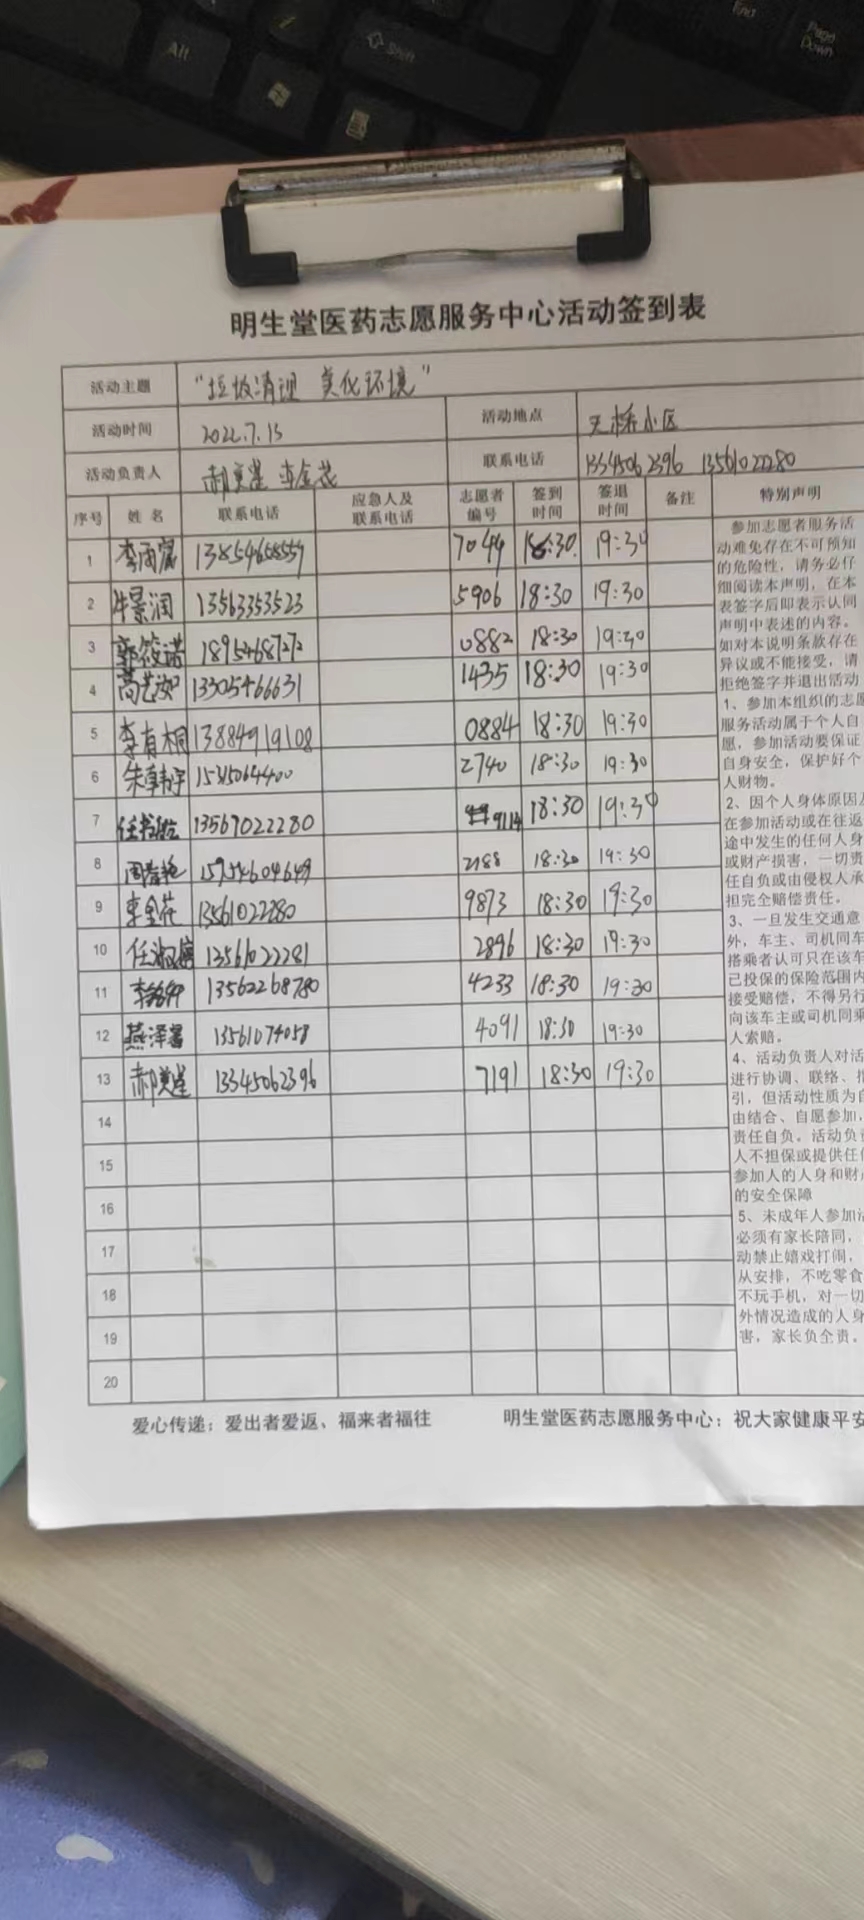 Alt
Shift
End
Page Down
明生堂医药志愿服务中心活动签到表
活动主题 "垃圾清理 美化环境"
活动时间 2022.7.15 活动地点 天桥小区
活动负责人 郝美星 李金花 联系电话 13345062396 13561022280
序号 姓名 联系电话 应急人及联系电话 志愿者编号 签到时间 签退时间 备注 特别声明
1 李雨宸 13854658559 7044 18:30 19:30
2 牛景润 13563353523 5906 18:30 19:30
3 郭筱诺 18954687272 0882 18:30 19:30
4 高艺 13305466631 1435 18:30 19:30
5 李有桐 13884919108 0884 18:30 19:30
6 朱韩宇 15315064400 2740 18:30 19:30
7 任 13567022280 9114 18:30 19:30
8 周春艳 15954604649 2188 18:30 19:30
9 李金花 13561022280 9873 18:30 19:30
10 任淑婷 13561022281 2896 18:30 19:30
11 李 13562268780 4233 18:30 19:30
12 燕泽 13561074058 4091 18:30 19:30
13 郝美星 13345062396 7191 18:30 19:30
14
15
16
17
18
19
20
参加志愿者服务活
动难免存在不可预知
的危险性，请务必仔
细阅读本声明，在本
表签字后即表示认同
声明中表述的内容。
如对本说明条款存在
异议或不能接受，请
拒绝签字并退出活动
1、参加本组织的志愿
服务活动属于个人自
愿，参加活动要保证
自身安全，保护好个
人财物。
2、因个人身体原因及
在参加活动或在往返
途中发生的任何人身
或财产损害，一切责
任自负或由侵权人承
担完全赔偿责任。
3、一旦发生交通意
外，车主、司机同车
搭乘者认可只在该车
已投保的保险范围内
接受赔偿，不得另行
向该车主或司机同乘
人索赔。
4、活动负责人对活
进行协调、联络、指
引，但活动性质为自
由结合、自愿参加，
责任自负。活动负责
人不担保或提供任何
参加人的人身和财产
的安全保障
5、未成年人参加活
必须有家长陪同，
动禁止嬉戏打闹，
从安排，不吃零食
不玩手机，对一切
外情况造成的人身
害，家长负全责。
爱心传递：爱出者爱返、福来者福往 明生堂医药志愿服务中心：祝大家健康平安